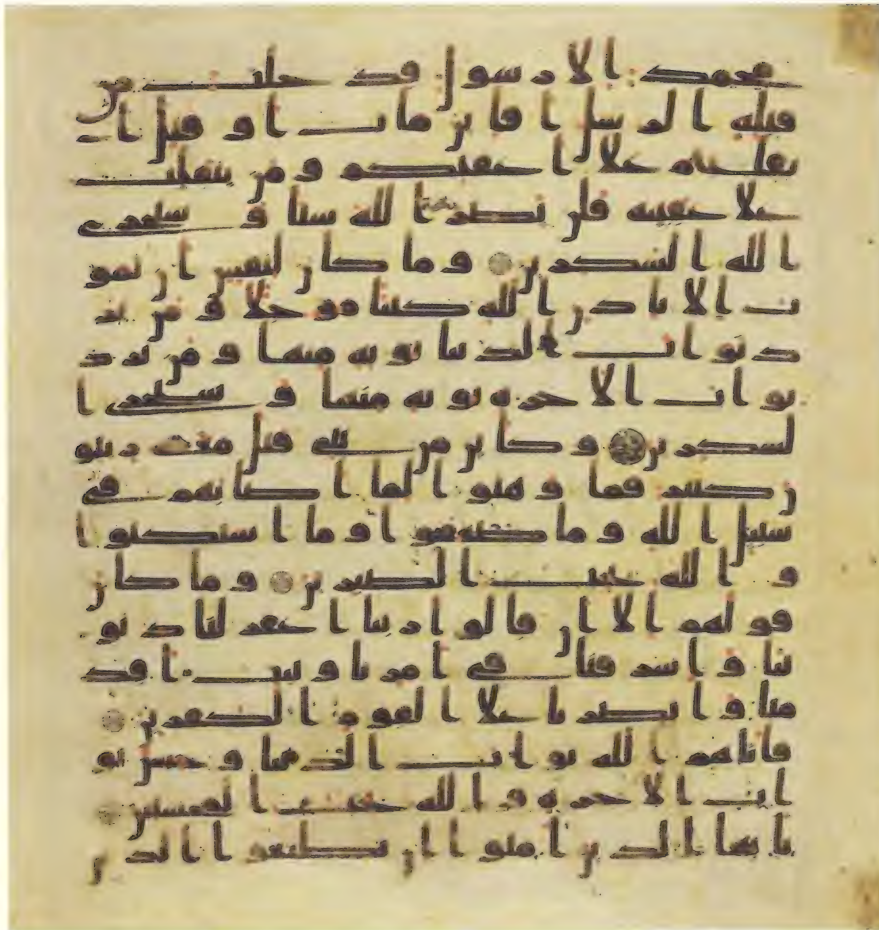 محمد الا رسول قد خلت من
قبله الرسل افاين مات او قتل ا
نقلبتم علا اعقبكم ومن ينقلب
علا عقبيه فلن يضر الله شيا و سيجزى
الله الشكرين وما كان لنفس ان تمو
ت الا باذن الله كتبا موجلا ومن ير
د ثواب الدنيا نوته منها ومن يرد
ثواب الاخرة نوته منها و سنجزى ا
لشكرين وكاين من نبى قتل معه ربيو
ن كثير فما وهنوا لما اصابهم فى
سبيل الله وما ضعفوا وما استكنوا
و الله يحب الصبرين وما كان
قولهم الا ان قالوا ربنا اغفر لنا ذنو
بنا واسرفنا فى امرنا وثبت اقد
منا وانصرنا علا القوم الكفرين
فاتاهم الله ثواب الدنيا وحسن ثو
اب الاخرة والله يحب المحسنين
يايها الذين امنوا ان تطيعوا الذين